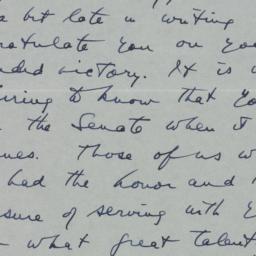 a bit late in writing
ratulate you on you
nded victory. It is
ring to know that yo
the Senate when it
nes. Those of us w
had the honor and
sure of serving with
what great talent